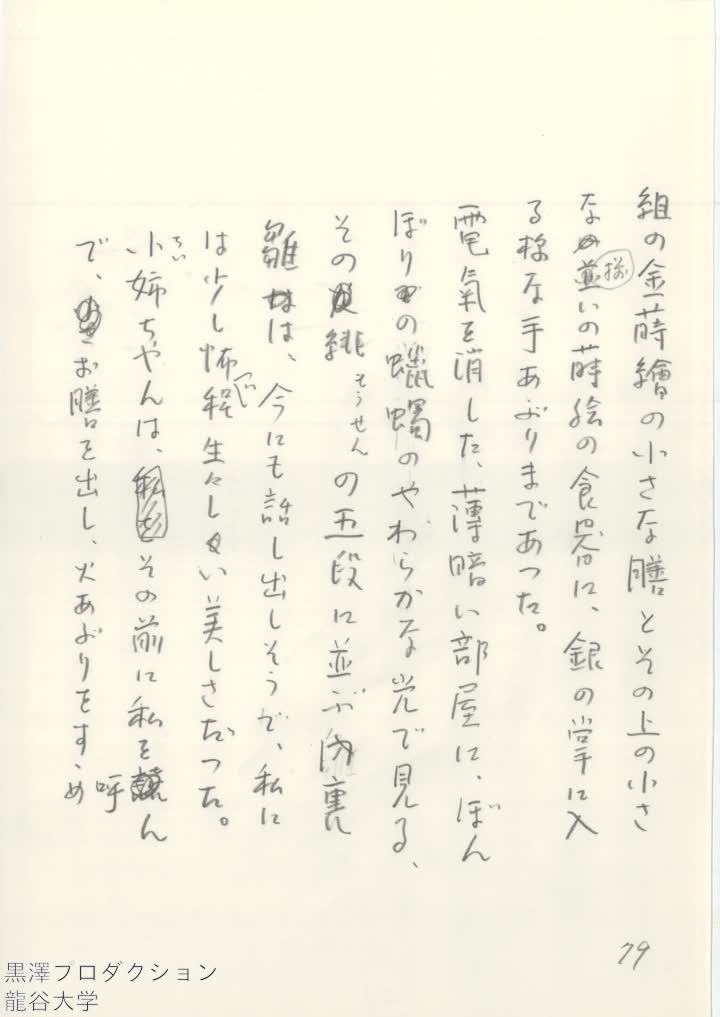 組の金蒔繪の小さな膳とその上の小さ
な揃いの蒔絵の食器に、銀の掌に入
る様な手あぶりまであつた。
電氣を消した、薄暗い部屋に、ぼん
ぼりの蠟蠋のやわらかな光で見る、
その緋もうせんの五段に並ぶ内裏
雛は、今にも話し出しそうで、私に
は少し怖い程生々しい美しさだつた。
小姉ちいちやんは、その前に私を呼ん
で、お膳を出し、火あぶりをすゝめ
79
黒澤プロダクション
龍谷大学